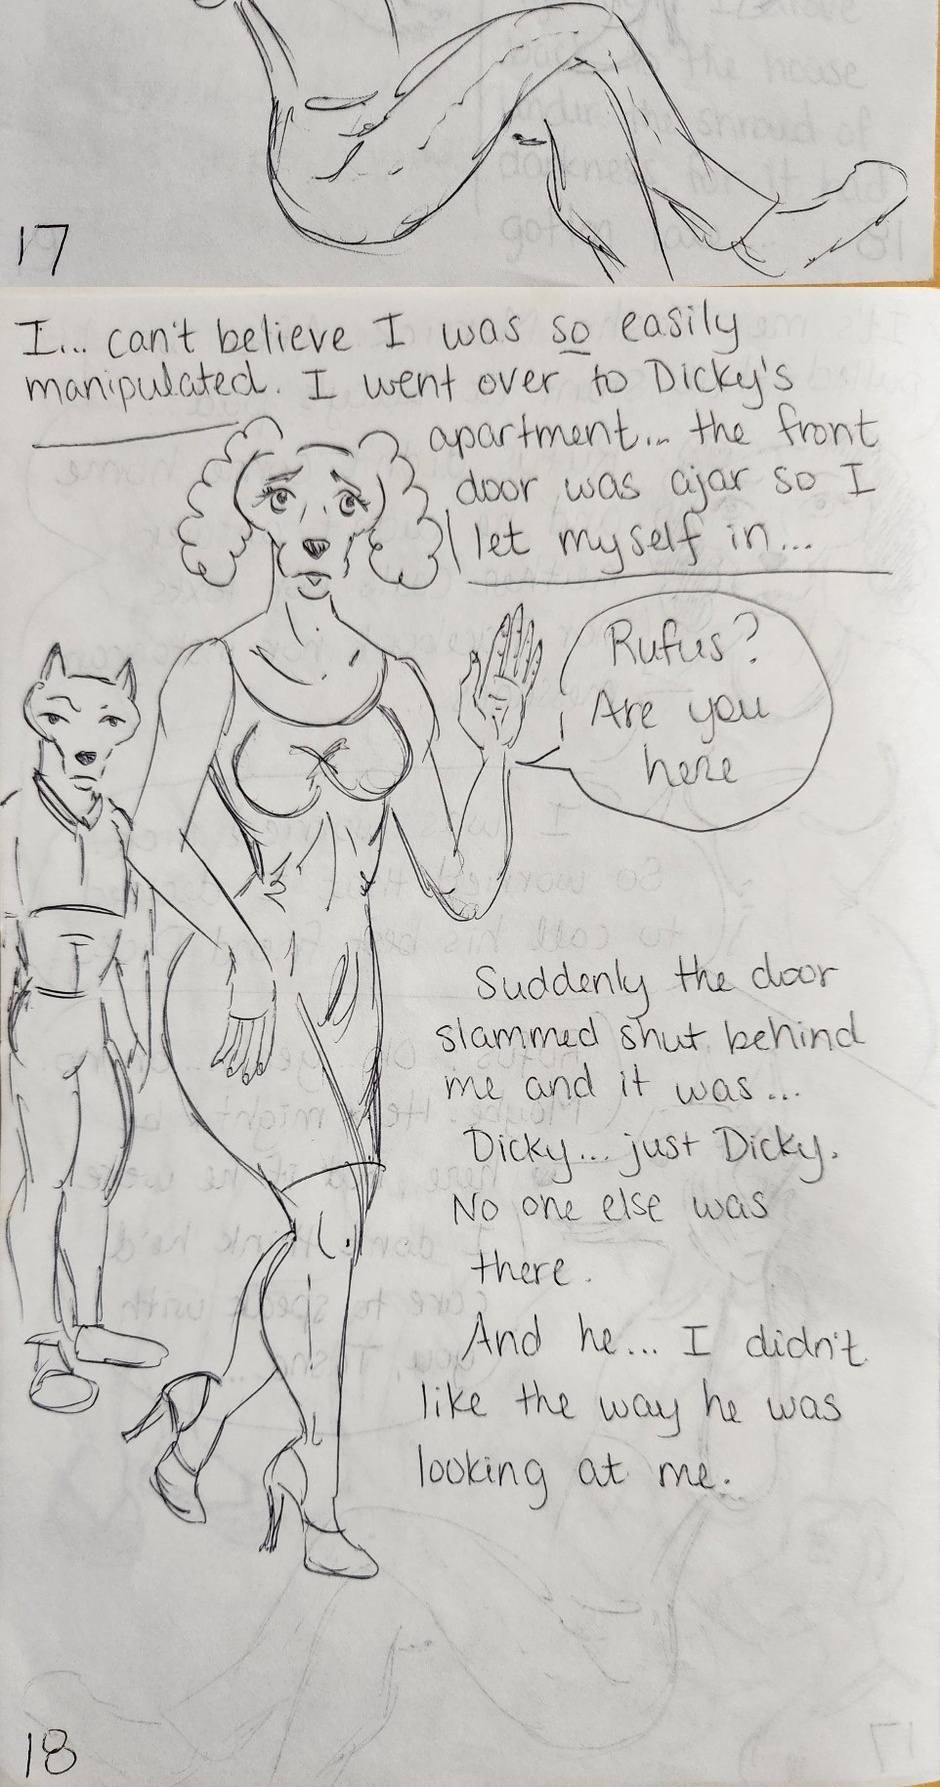 17
I... can't believe I was so easily
manipulated. I went over to Dicky's
apartment... the front
door was ajar so I
let myself in...
Rufus?
Are you
here
Suddenly the door
slammed shut behind
me and it was...
Dicky... just Dicky.
No one else was
there.
And he... I didn't
like the way he was
looking at me.
18